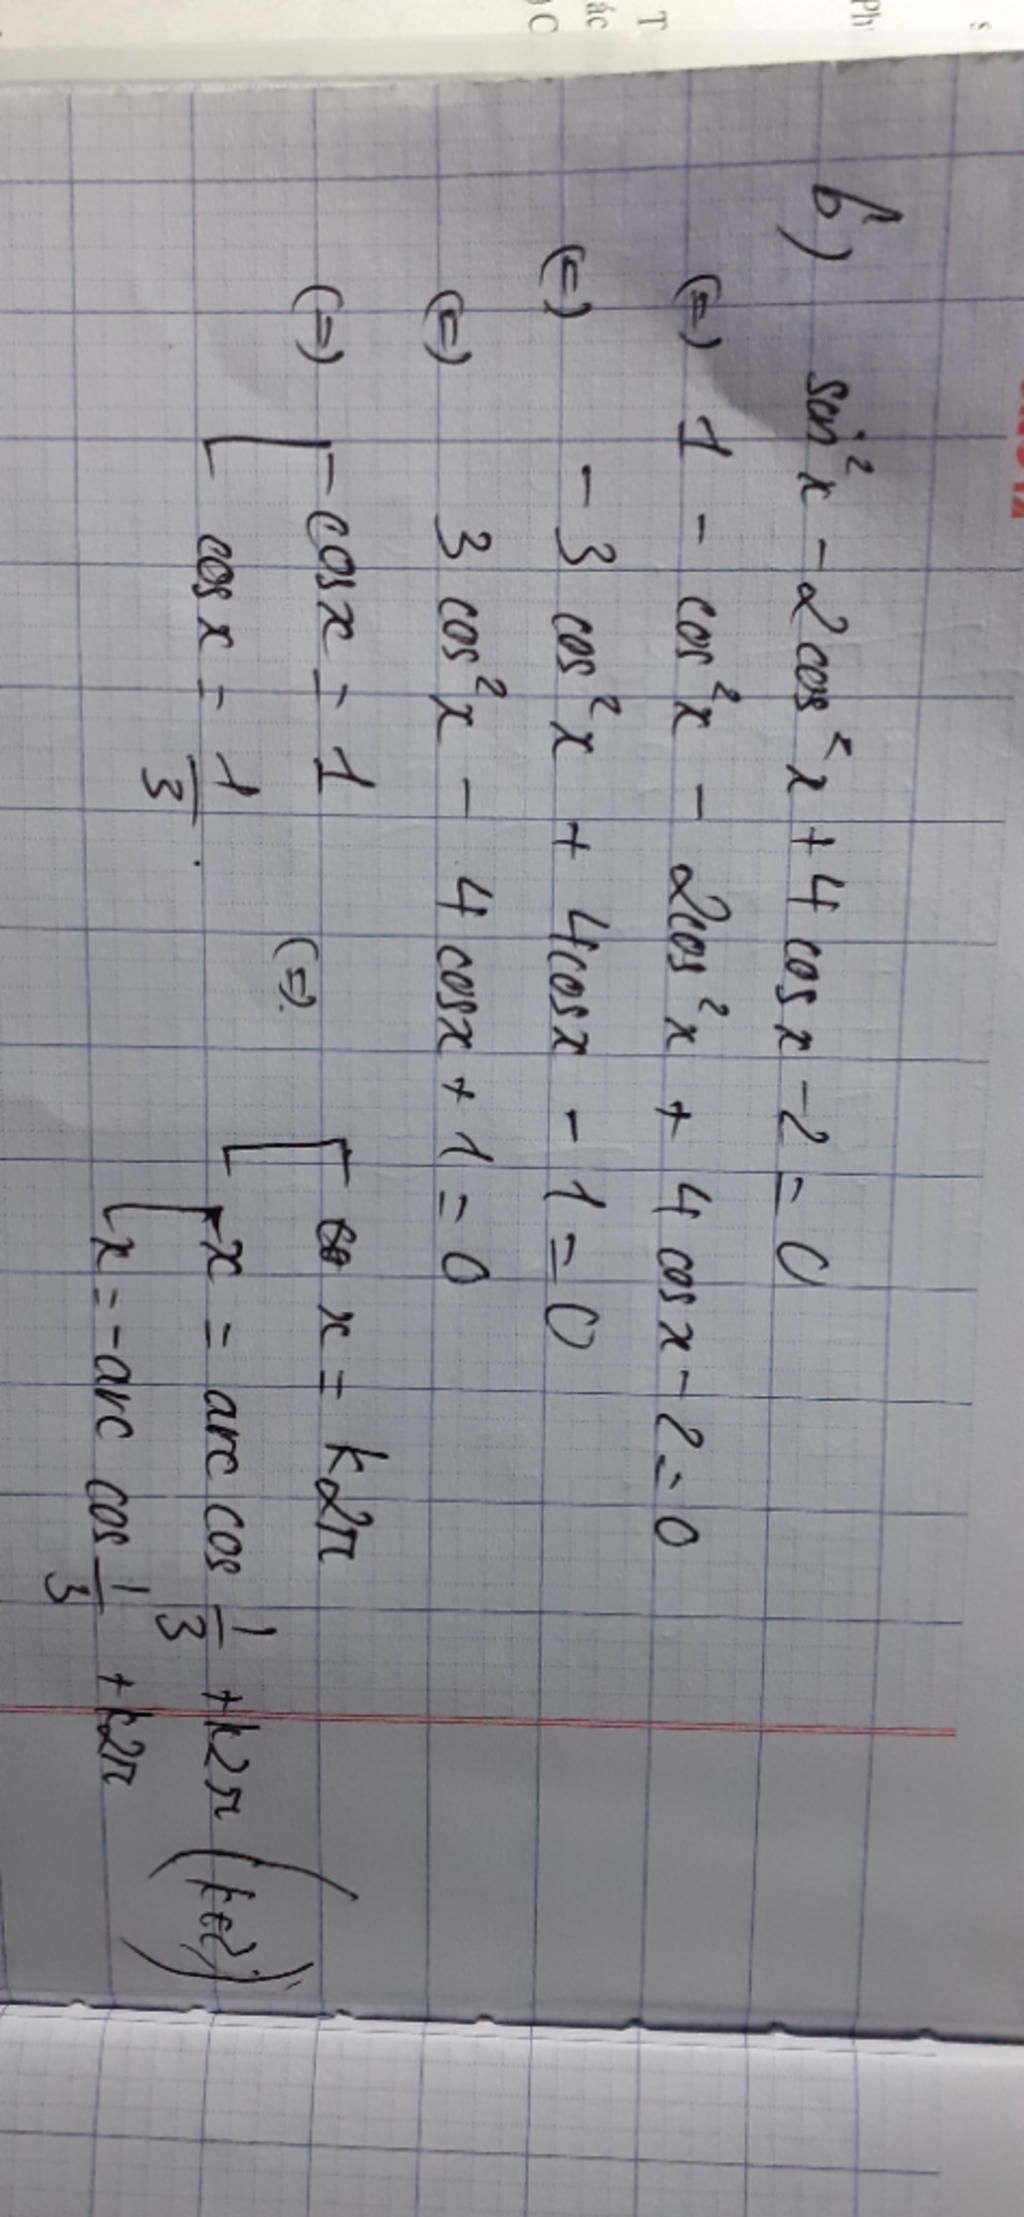 b) sin²x - 2cos²x + 4 cosx - 2 = 0
(=) 1 - cos²x - 2cos²x + 4 cosx - 2 = 0
(=) - 3 cos²x + 4cosx - 1 = 0
(=) 3 cos²x - 4 cosx + 1 = 0
(=) [ cosx = 1
cosx = 1/3 .
(=) [ x = k2π
[ x = arc cos 1/3 + k2π (k∈Z)
x = -arc cos 1/3 + k2π
Ph
T
ác
C
s